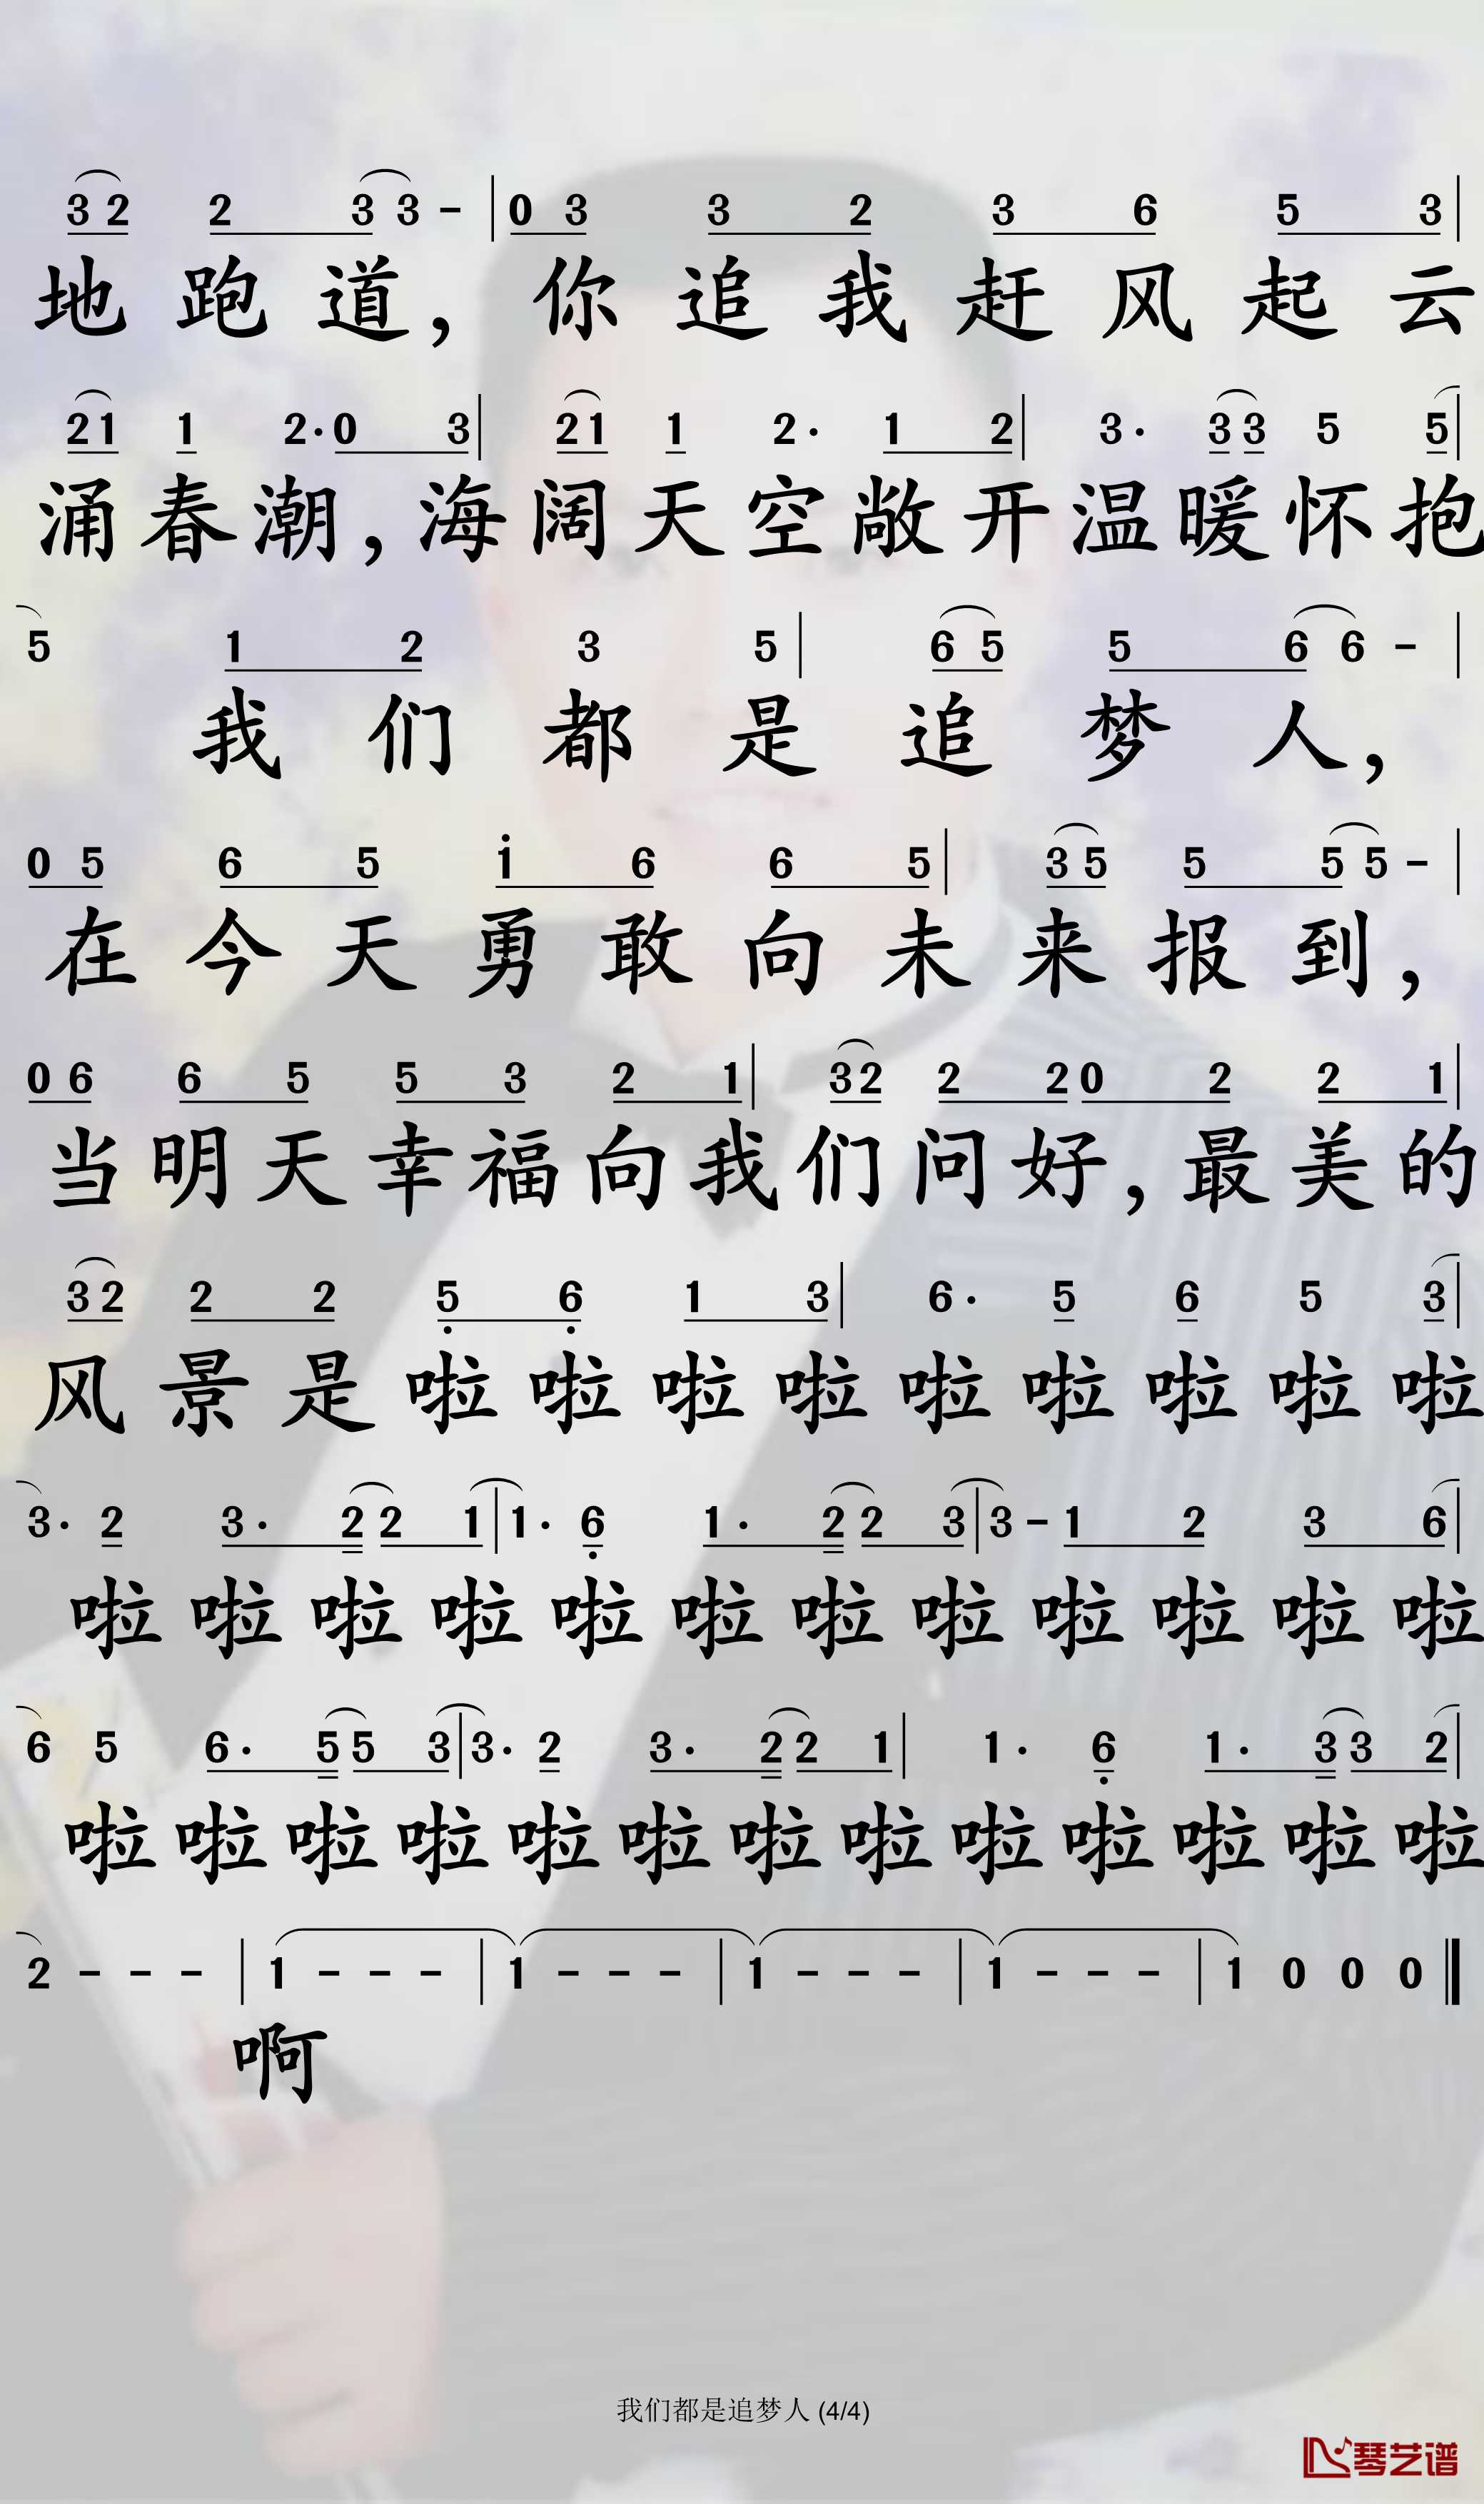 3 2 2 3 3 - | 0 3 3 2 3 6 5 3 |
地跑道，你追我赶风起云
2 1 1 2· 0 3 | 2 1 1 2· 1 2 | 3· 3 3 5 5 |
涌春潮，海阔天空敞开温暖怀抱
5 1 2 3 5 | 6 5 5 6 6 - |
我们都是追梦人，
0 5 6 5 i 6 6 5 | 3 5 5 5 5 - |
在今天勇敢向未来报到，
0 6 6 5 5 3 2 1 | 3 2 2 2 0 2 2 1 |
当明天幸福向我们问好，最美的
3 2 2 2 5 6 1 3 | 6· 5 6 5 3 |
风景是啦啦啦啦啦啦啦啦啦
3· 2 3· 2 2 1 | 1· 6 1· 2 2 3 | 3 - 1 2 3 6 |
啦啦啦啦啦啦啦啦啦啦啦啦
6 5 6· 5 5 3 | 3· 2 3· 2 2 1 | 1· 6 1· 3 3 2 |
啦啦啦啦啦啦啦啦啦啦啦啦啦
2 - - - | 1 - - - | 1 - - - | 1 - - - | 1 - - - | 1 0 0 0 ‖
啊
我们都是追梦人 (4/4)
琴艺谱